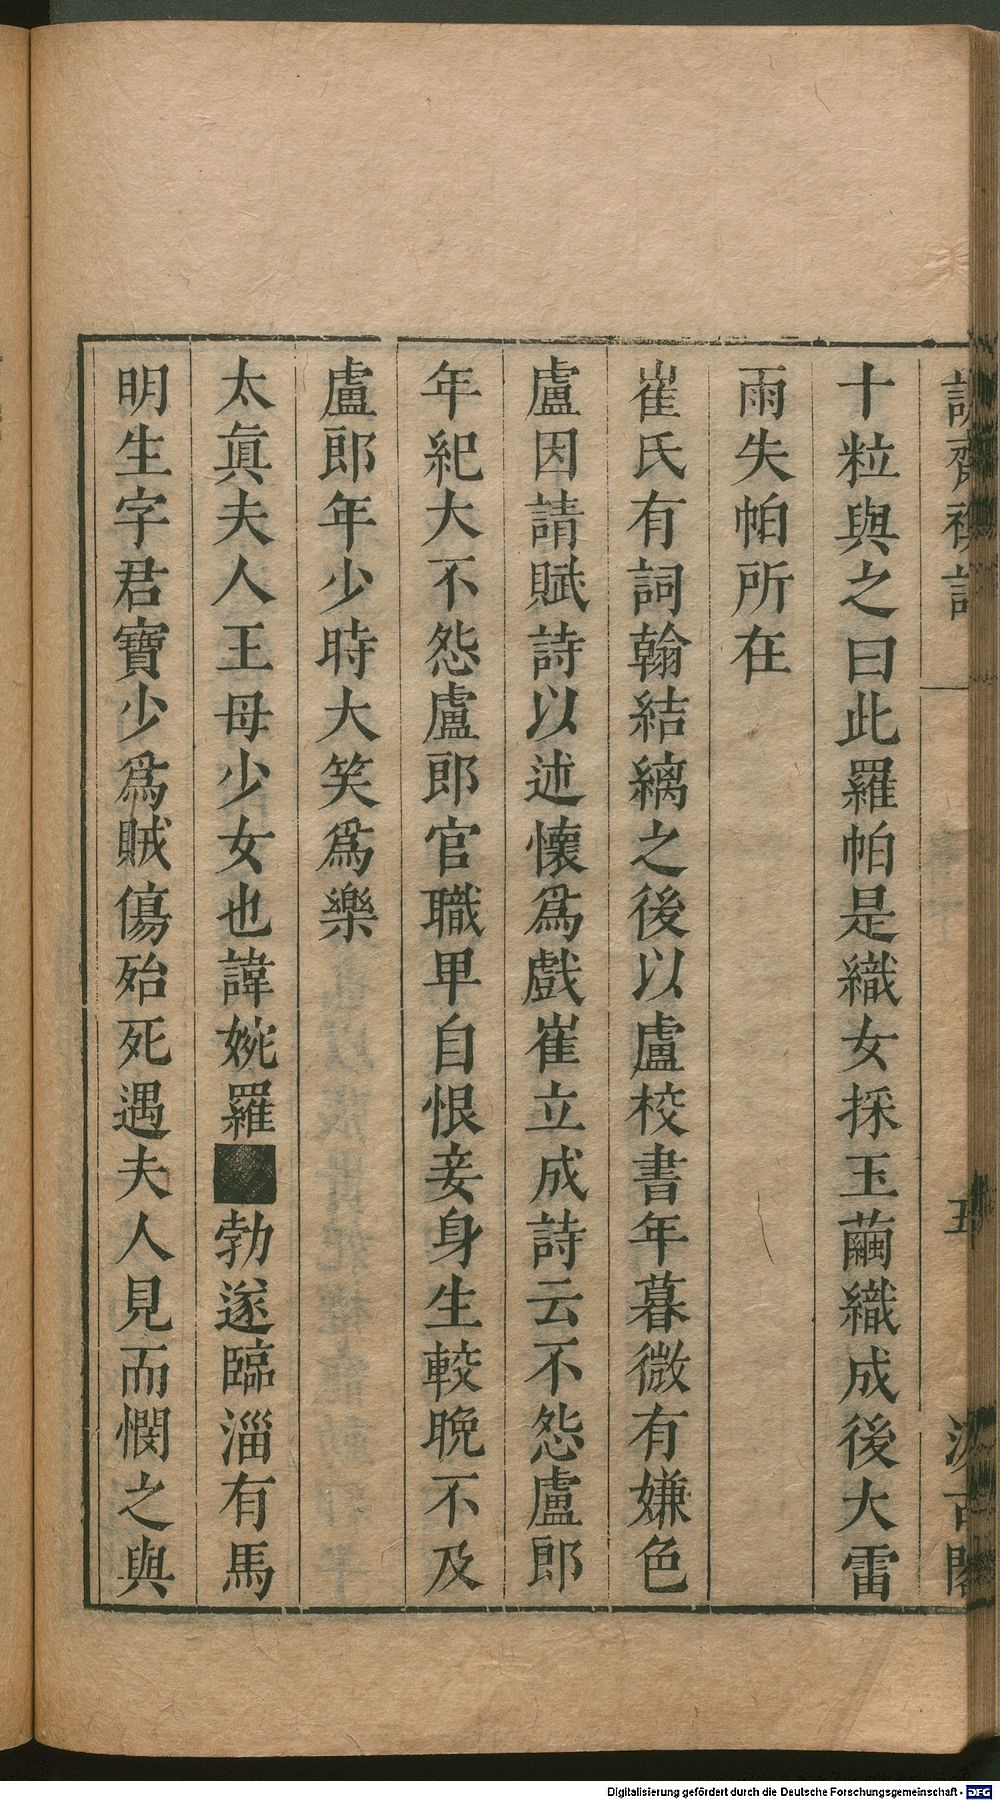 誠齋襍記
五
汲古閣
十粒與之曰此羅帕是織女採玉繭織成後大雷
雨失帕所在
崔氏有詞翰結縭之後以盧校書年暮微有嫌色
盧因請賦詩以述懷爲戲崔立成詩云不怨盧郎
年紀大不怨盧郎官職卑自恨妾身生較晚不及
盧郎年少時大笑爲樂
太眞夫人王母少女也諱婉羅■勃遂臨淄有馬
明生字君寶少爲賊傷殆死遇夫人見而憫之與
Digitalisierung gefördert durch die Deutsche Forschungsgemeinschaft - DFG